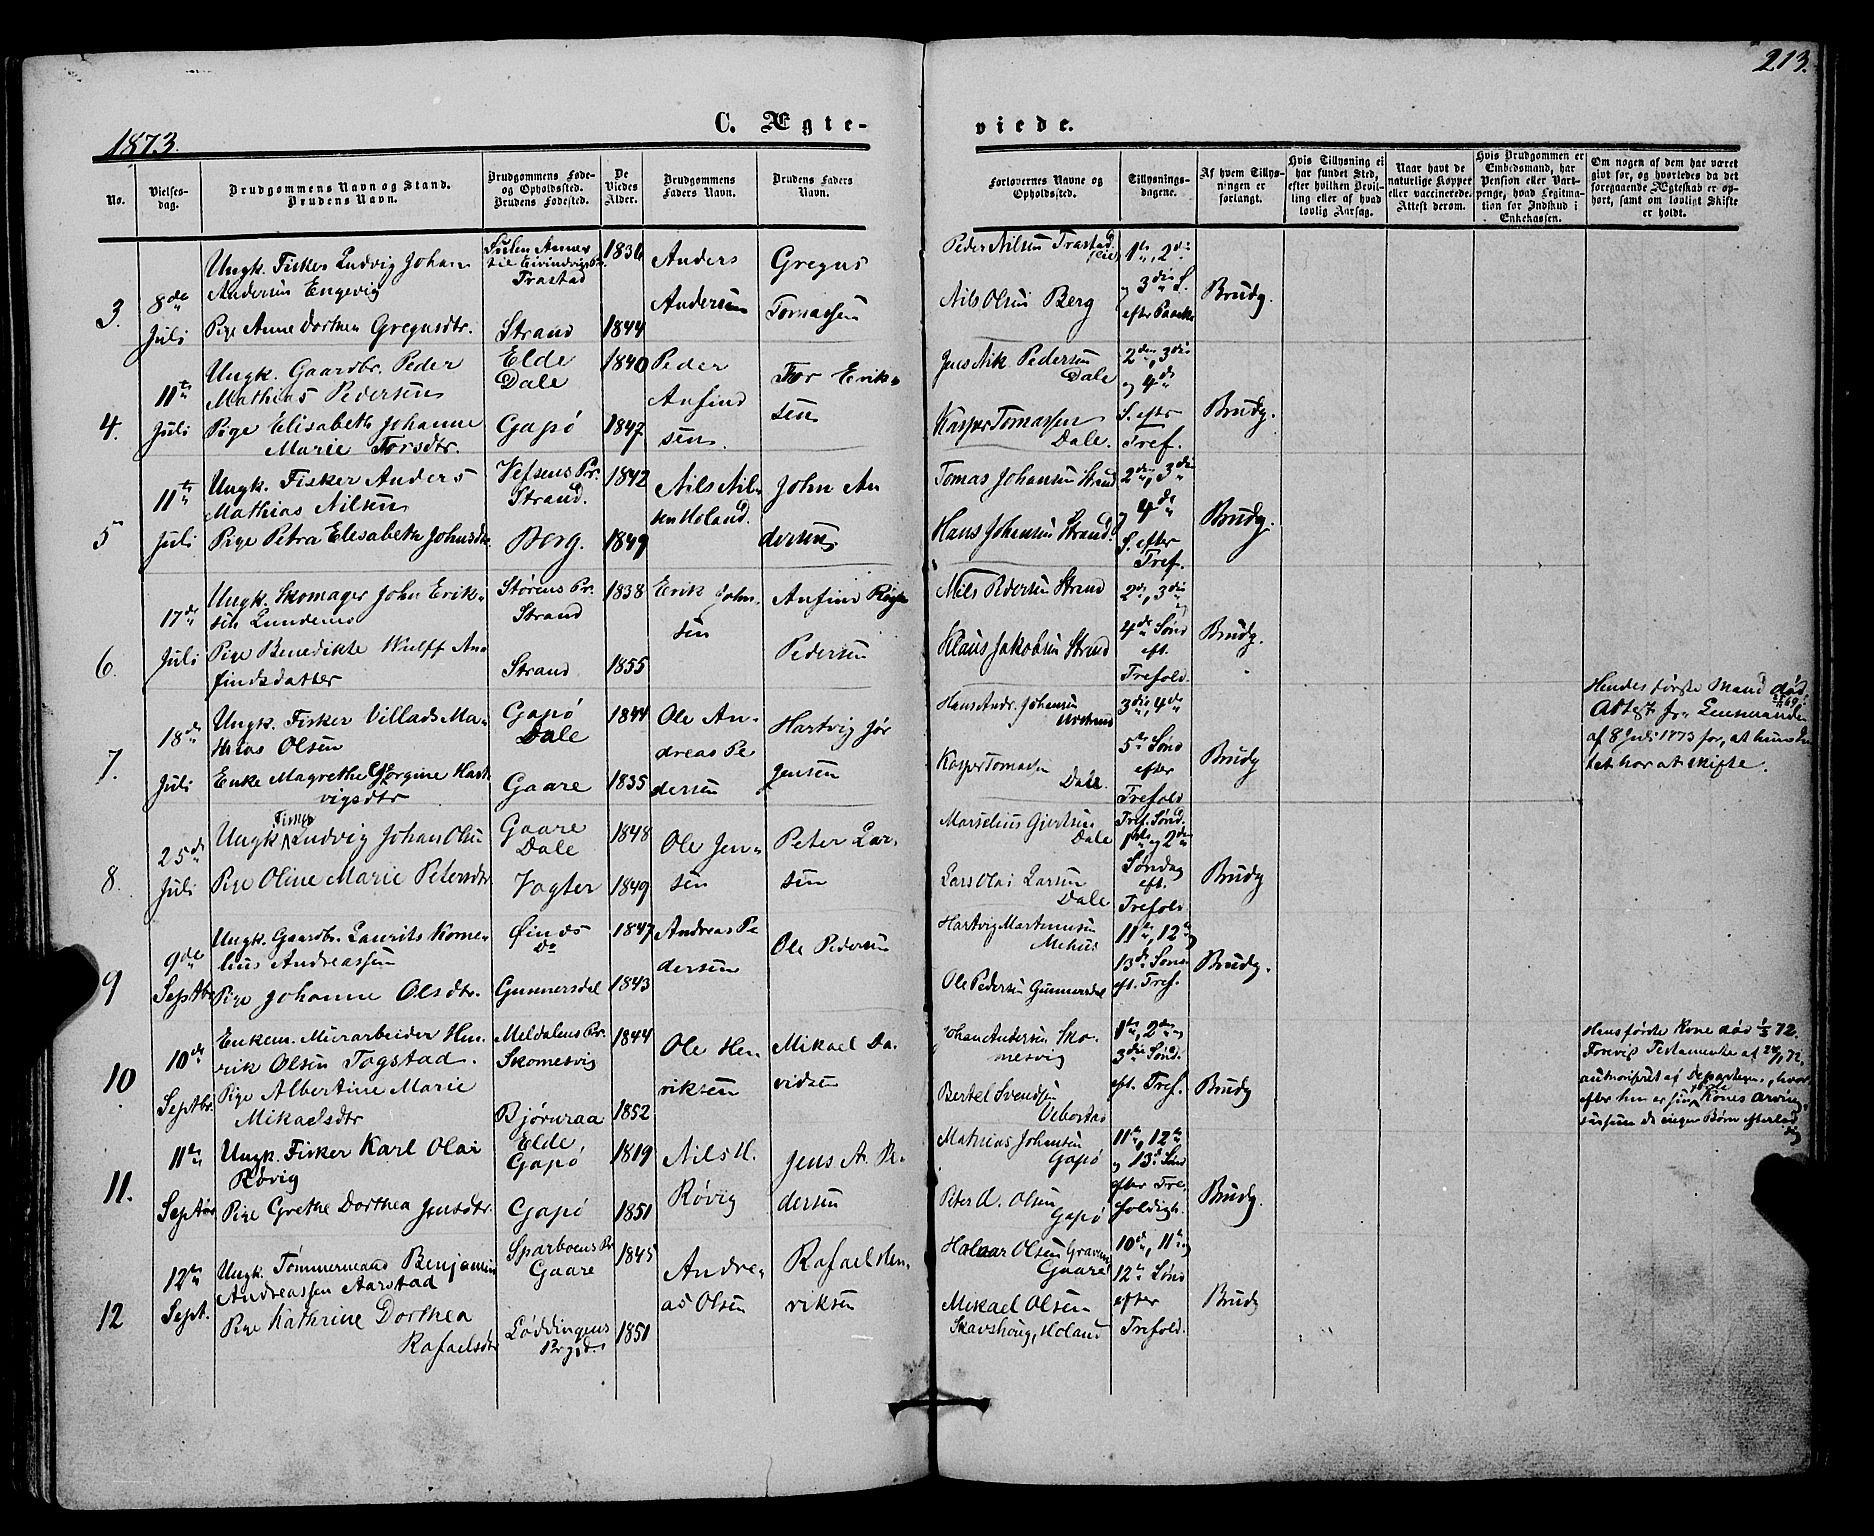 213.
1873.
C. Ægte-
viede.
No.
Vielses-
dag.
Brudgommens Navn og Stand.
Brudens Navn.
Brudgommens Føde-
og Opholdssted.
Brudens Fødested.
De
Viedes
Alder.
Brudgommens
Faders Navn.
Brudens Faders
Navn.
Forlovernes Navne og
Opholdssted.
Tillysnings-
dagene.
Af hvem Tillys-
ningen er
forlangt.
Hvis Tillysning ei
har fundet Sted,
efter hvilken Bevil-
ling eller af hvad
lovlig Aarsag.
Naar havt de
naturlige Kopper
eller vaccinerede.
Attest derom.
Hvis Brudgommen er
Embedsmand, har
Pension eller Vart-
penge, hvad Legitima-
tion for Indskud i
Enkekassen.
Om nogen af dem har været
givt før, og hvorledes da det
foregaaende Ægteskab er op-
hørt, samt om lovligt Skifte
er holdt.
3.
8de
Juli
Ungk. Fisker Ludvig Johan
Andersen Engevig
Pige Anne Dorthea Gregusdtr.
Trastad
Strand
1844
Anders
Andersen
Gregus
Tomassen
Peder Nilsen Trastad
Nils Olsen Berg
1te, 2de
og 3die S.
efter Paaske
Brudg.
4.
11te
Juli
Ungk. Gaardbr. Peder
Mathias Pedersen
Pige Elisabeth Johanne
Marie Torsdtr.
Elde
Dale
Gapø
1840
1847
Peder
Anfind
sen.
Tor Erik-
sen
Jens Nik Pedersen
Dale
Kasper Tomassen
Dale.
2den, 3die
og 4de
S. efter
Tref.
Brudg.
5
11te
Juli
Ungk. Fisker Anders
Mathias Nilsen
Pige Petra Elisabeth Johnsdtr
Vefsens Pr.
Strand.
Berg.
1842
1849
Nils Nil-
sen Holand.
John An
dersen
Tomas Johansen Strand
Hans Johansen Strand.
2den, 3die
og 4de
S. efter
Tref.
Brudg.
6.
17de
Juli
Ungk. Skomager John Erik-
sen Lundemo
Pige Benedikte Wulff An
findsdatter
Størens Pr.
Strand
Strand
1838
1855
Erik John-
sen
Anfind
Pedersen
Nils Pedersen Strand
Klaus Jakobsen Strand
2de, 3die og
4de Sønd
eft.
Trefold.
Brudg.
7.
18de
Juli
Ungk. Fisker Villads Ma-
thias Olsen
Enke Magrethe Jorgine Hart
vigsdtr
Gapø
Dale
Gaare
1844
1835
Ole An-
dreas Pe
dersen
Hartvig Jør
gensen
Hans Andr. Johansen
Kasper Tomasen
Dale.
3die, 4de
5te Sønd
efter
Trefold
Brudg
Hendes første Mand død
Attest fr. Lensmanden
af 8 Juli 1873 for, at hun In-
tet har at skifte.
8.
25de
Juli
Ungk Fisker Ludvig Johan Olsen
Pige Oline Marie Petersdtr
Gaare
Dale
Vagter
1848
1849
Ole Jen-
sen
Peter Lar-
sen
Marselius Gjertsen
Dale
Lars Olai Larsen
Dale
Tref. Sønd.
1ste og 2den
Søndag
eft.
Trefold.
Brudg
9
9de
Septbr
Ungk. Gaardbr. Laurits Korne-
lius Andreassen
Pige Johanne Olsdtr.
Øinæs
Do
Gunnersdal
1847
1843
Andreas Pe
dersen
Ole Pedersen
Hartvig Martinusen
Mehus
Ole Pedersen Gunnersdal
11te, 12te og
13de Sønd
eft. Tref.
Brudg.
10
10de
Septbr.
Enkem. Murarbeider Hen-
rik Olsen Togstad.
Pige Albertine Marie
Mikaelsdtr
Meldalens Pr.
Skomesvig
Bjørnraa
1844
1852
Ole Hen
riksen
Mikael Da-
vidsen
Johan Andersen Sko-
mesvig
Bertel Svendsen
1te, 2den og
3die Sønd.
eft. Tref.
Brudg
Hans første Kone død 1/3 72.
Forevist Testamente af
autoriseret af Departem., hvor
efter han er sin første Kones Arving,
saasom de ingen Børn efterlod
sig
11.
11te
Septbr
Ungk. Fisker Karl Olai
Røvig
Pige Grethe Dorthea Jensdtr.
Elde
Gapø
Gapø
1819
1851
Nils H.
Røvig
Jens A. Pe-
dersen
Mathias Johansen
Gapø
Peter A. Olsen
Gapø
11te, 12te
og 13de Sønd
efter Tre-
foldigh.
Brudg.
12
12te
Sept.
Ungk. Tømmermand Benjamin
Andreassen Aarstad
Pige Kathrine Dorthea
Rafaelsdtr
Sparboens Pr
Gaare
Løddingens
Prgjd.
1845
1851
Andre-
as Olsen
Rafael Hen-
riksen
Halvar Olsen Graven
Gaare
Mikael Olsen
Skavshoug, Holand
10de, 11te og
12te Sønd
efter
Trefold.
Brudg